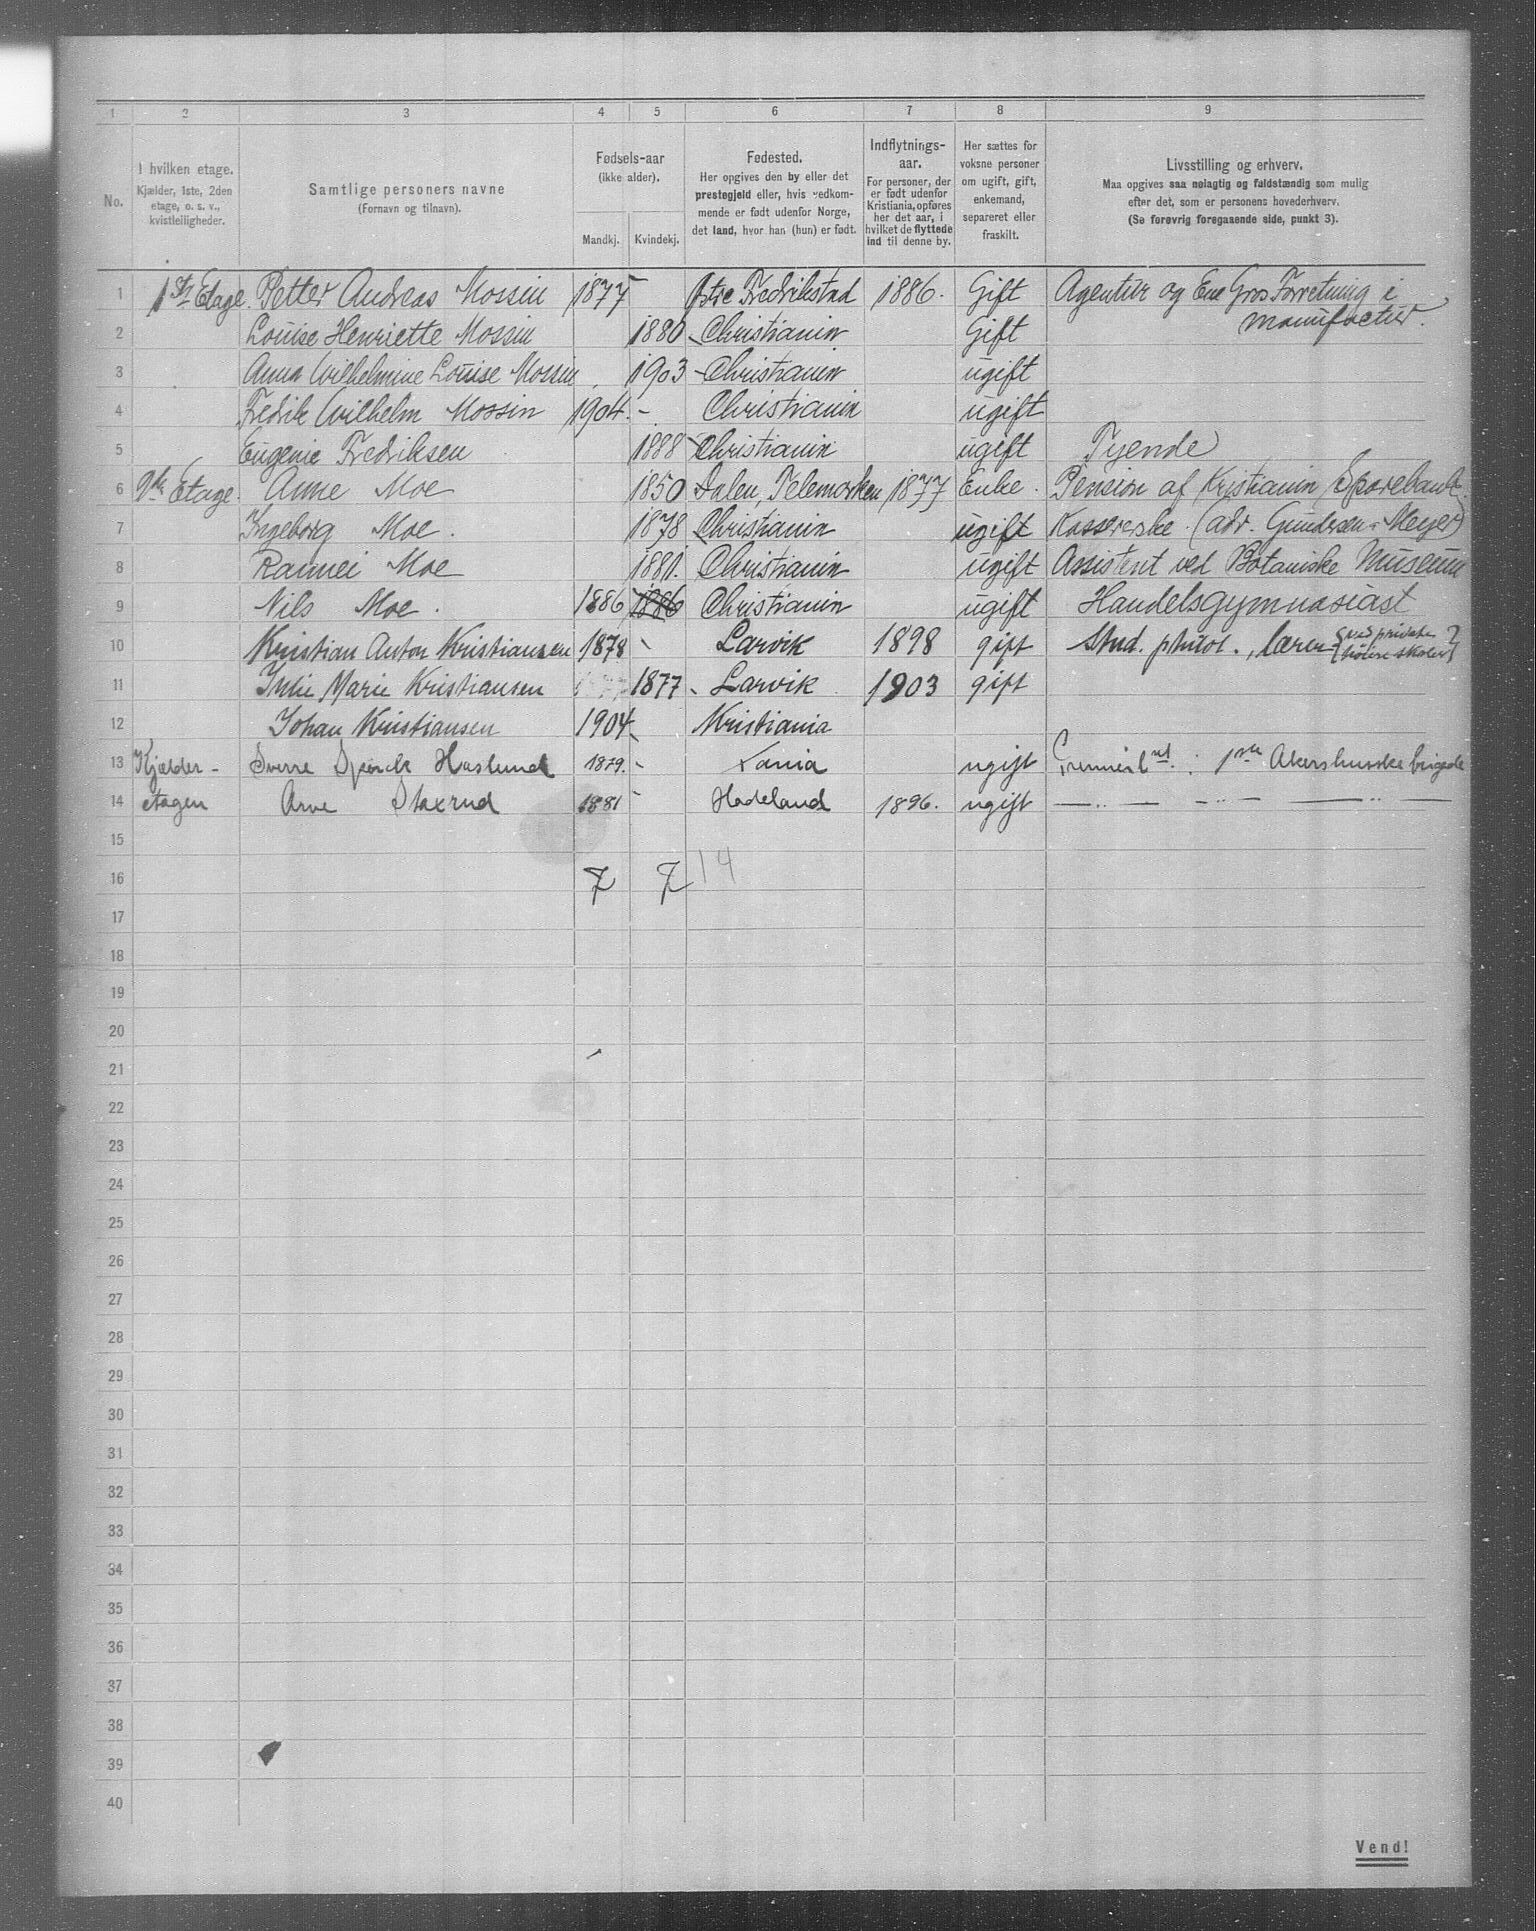 1 2 3 4 5 6 7 8 9
No.
I hvilken etage.
Kjælder, 1ste, 2den
etage, o. s. v.,
kvistleiligheder.
Samtlige personers navne
(Fornavn og tilnavn).
Fødsels-aar
(ikke alder).
Mandkj. Kvindekj.
Fødested.
Her opgives den by eller det
prestegjeld eller, hvis vedkom-
mende er født udenfor Norge,
det land, hvor han (hun) er født.
Indflytnings-
aar.
For personer, der
er født udenfor
Kristiania, opføres
her det aar, i
hvilket de flyttede
ind til denne by.
Her sættes for
voksne personer
om ugift, gift,
enkemand,
separeret eller
fraskilt.
Livsstilling og erhverv.
Maa opgives saa nøiagtig og fuldstændig som mulig
efter det, som er personens hovederhverv.
(Se forøvrig foregaaende side, punkt 3).
1 1ste Etage. Petter Andreas Mossin 1877 Østre Fredrikstad 1886. Gift Agentur og En Gros Forretning i
manufactur.
2 Louise Henriette Mossin 1880 Christiania Gift
3 Anna Wilhelmine Louise Mossin 1903 Christiania ugift
4 Fredik Wilhelm Mossin 1904. - Christiania ugift
5 Eugenie Fredriksen 1888 Christiania ugift Tyende
6 Etage. Anne Moe 1850 Dalen, Telemarken 1877 Enke. Pension af Kristiania Sparebank.
7 Ingeborg Moe. 1878 Christiania ugift Kassererske. (adv. Gundersen - Meyer)
8 Rannei Moe 1881. Christiania ugift Assistent ved Botaniske Museum
9 Nils Moe. 1886 1886 Christiania ugift Handelsgymnasiast
10 Kristian Anton Kristiansen 1878 - Larvik 1898 gift Stud. philol., lærer {ved private
høiere skoler}
11 Julie Marie Kristiansen 1877 - Larvik 1903 gift
12 Johan Kristiansen 1904 - Kristiania
13 Kjælder- Sverre Spørck Haslund 1879. - Xania ugift Premierlt : 1ste Akershusske brigade
14 etagen Arve Staxrud 1881 - Hadeland 1896. ugift — „ — — „ — — „ —
15
16 7 7 14
17
18
19
20
21
22
23
24
25
26
27
28
29
30
31
32
33
34
35
36
37
38
39
40
Vend!